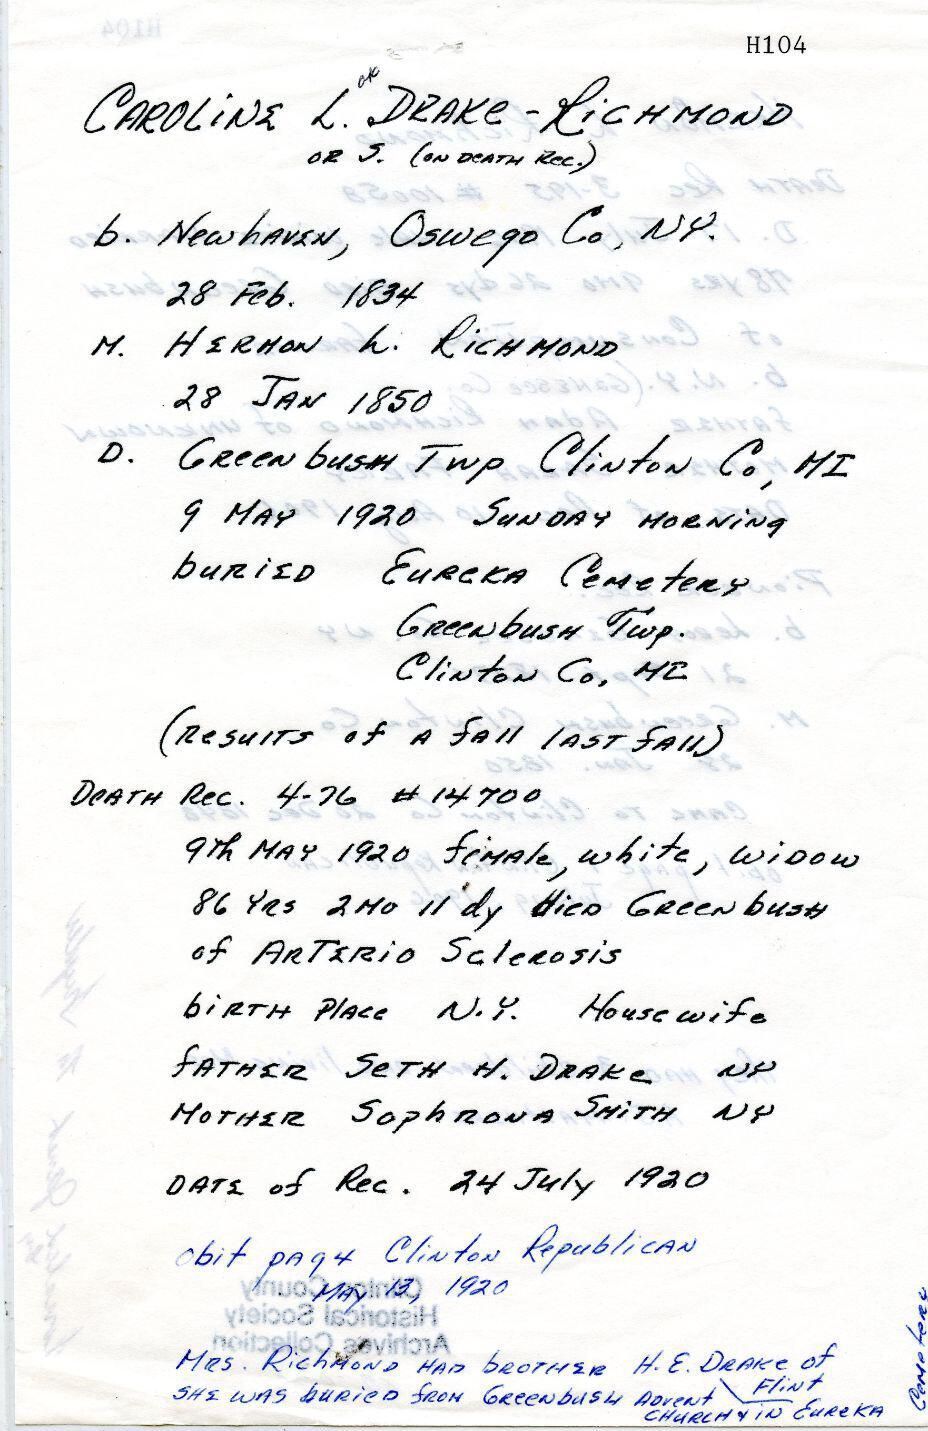 H104
ok
CAROLINE L. DRAKE-RICHMOND
OR S. (ON DEATH REC.)
b. NewhAVEN, Oswego Co, NY.
28 Feb. 1834
M. HERMON L. RICHMOND
28 JAN 1850
D. GREENbUSH Twp Clinton Co, MI
9 MAY 1920 SUNDAY MORNING
bURIED EUREKA Cemetery
GREENbUSH Twp.
Clinton Co, MI
(RESUlTS of A fAll lAST fAll)
DEATH Rec. 4-76 #14700
9th MAY 1920 female, white, widow
86 YRS 2 MO 11 dy died GREENbUSH
of ARTERIO SclEROSIS
biRTH PlAce N.Y. Housewife
fATHER SETH H. DRAKE NY
MOTHER SophRONA SMITH NY
DATE of Rec. 24 July 1920
obit pAg 4 Clinton RepublicAN
MAY 13, 1920
Clinton County
Historical Society
Archives Collection
MRS. RICHMOND HAD bROTHER H.E. DRAKE of
Flint
SHE WAS bURIED fROM GREENbUSH ADVENT
CHURCH & IN EUREKA
Cemetery